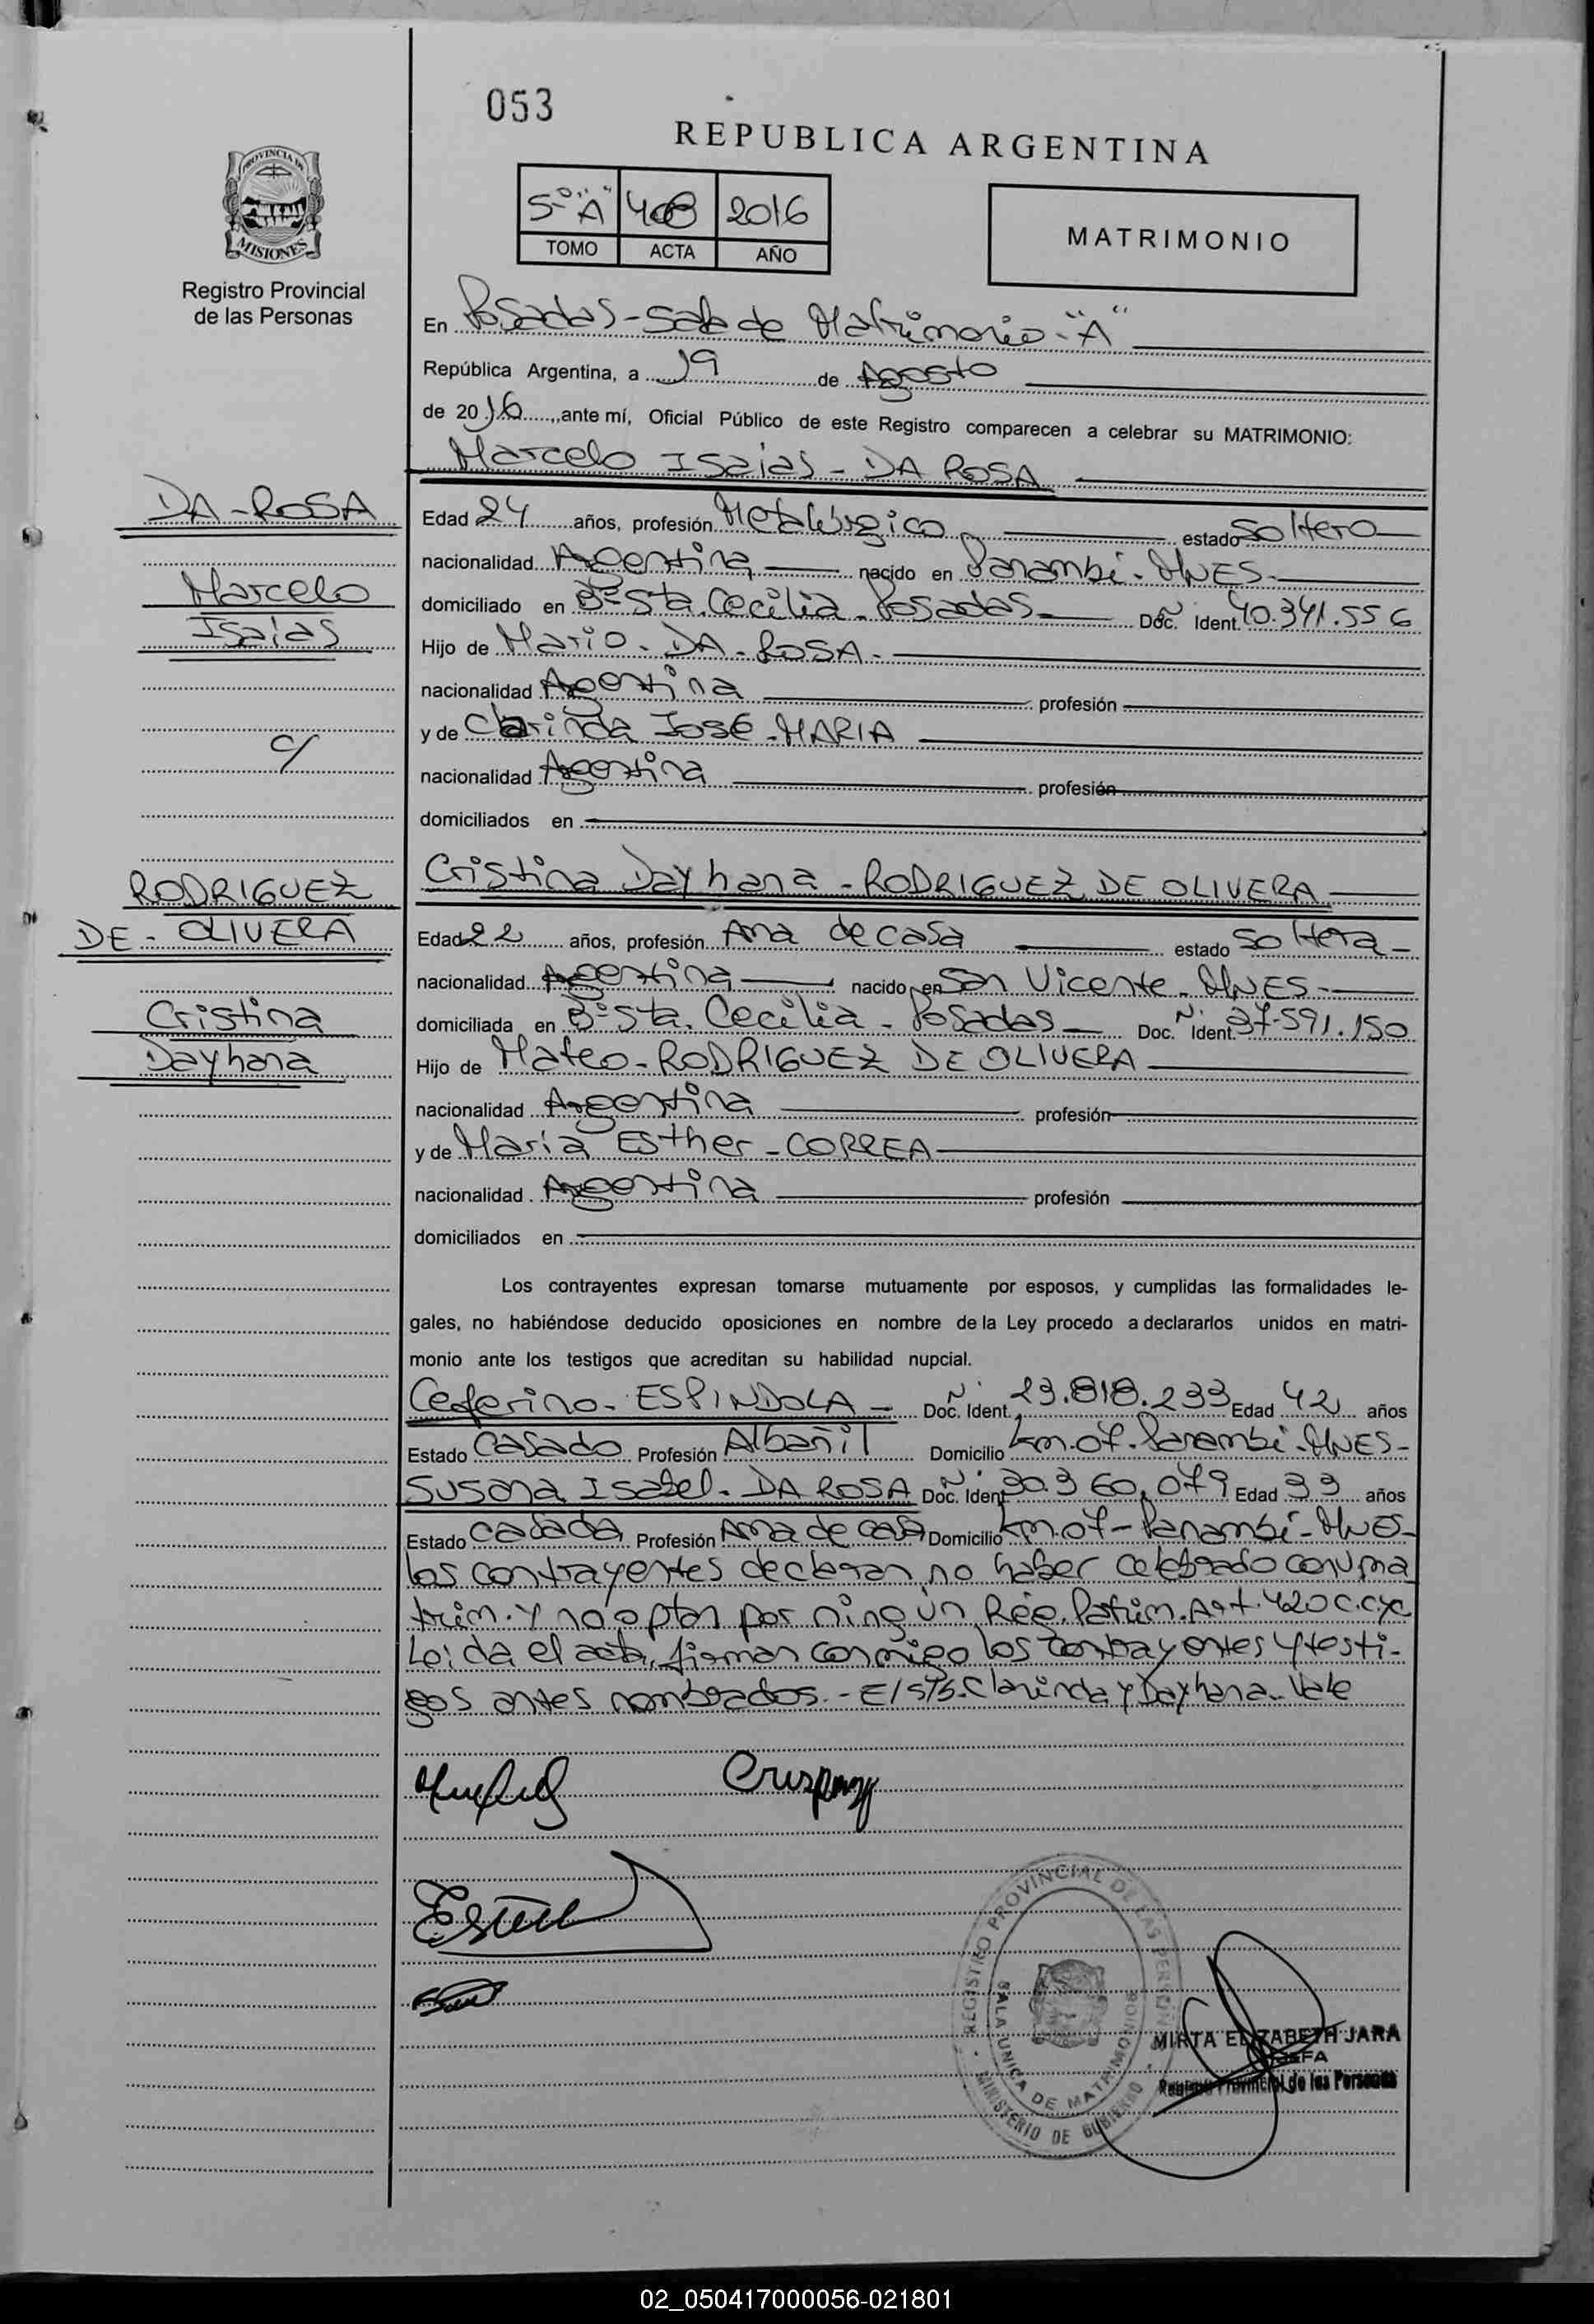 053
REPUBLICA ARGENTINA
PROVINCIA DE
MISIONES
Registro Provincial
de las Personas
5º "A" 408 2016
TOMO ACTA AÑO
MATRIMONIO
En Posadas - Sala de Matrimonio - "A"
República Argentina, a 19 de Agosto
de 2016, ante mí, Oficial Público de este Registro comparecen a celebrar su MATRIMONIO:
Marcelo Isaías - DA ROSA
DA - ROSA
Marcelo
Isaías
c/
RODRIGUEZ
DE - OLIVERA
Cristina
Dayhana
Edad 24 años, profesión Metalúrgico estado Soltero
nacionalidad Argentina nacido en Panambí - Mnes -
domiciliado en Bº Sta. Cecilia - Posadas - Doc. Ident. Nº 40.341.556
Hijo de Mario - DA - ROSA -
nacionalidad Argentina profesión
y de Clarinda José - MARIA
nacionalidad Argentina profesión
domiciliados en
Cristina Dayhana - RODRIGUEZ DE OLIVERA
Edad 22 años, profesión Ama de casa estado Soltera -
nacionalidad Argentina nacido en San Vicente - Mnes -
domiciliada en Bº Sta. Cecilia - Posadas - Doc. Ident. Nº 37.591.150
Hijo de Mateo - RODRIGUEZ DE OLIVERA
nacionalidad Argentina profesión
y de María Esther - CORREA
nacionalidad Argentina profesión
domiciliados en
Los contrayentes expresan tomarse mutuamente por esposos, y cumplidas las formalidades le-
gales, no habiéndose deducido oposiciones en nombre de la Ley procedo a declararlos unidos en matri-
monio ante los testigos que acreditan su habilidad nupcial.
Ceferino - ESPINDOLA - Doc. Ident. Nº 23.818.233 Edad 42 años
Estado Casado Profesión Albañil Domicilio km. 07 - Panambí - Mnes -
Susana Isabel - DA ROSA Doc. Ident. Nº 30.360.079 Edad 33 años
Estado Casada Profesión Ama de casa Domicilio km. 07 - Panambí - Mnes -
los contrayentes declaran no haber celebrado conv. ma
trim. y no optan por ningún Rég. Patrim. Art. 420 C.CyC
Leída el acta, firman conmigo los contrayentes y testi-
gos antes nombrados. - E/ S/S: Clarinda y Dayhana - Vale
REGISTRO PROVINCIAL DE LAS PERSONAS
SALA UNICA DE MATRIMONIOS
MINISTERIO DE GOBIERNO
MIRTA ELIZABETH JARA
JEFA
Registro Provincial de las Personas
02_050417000056-021801